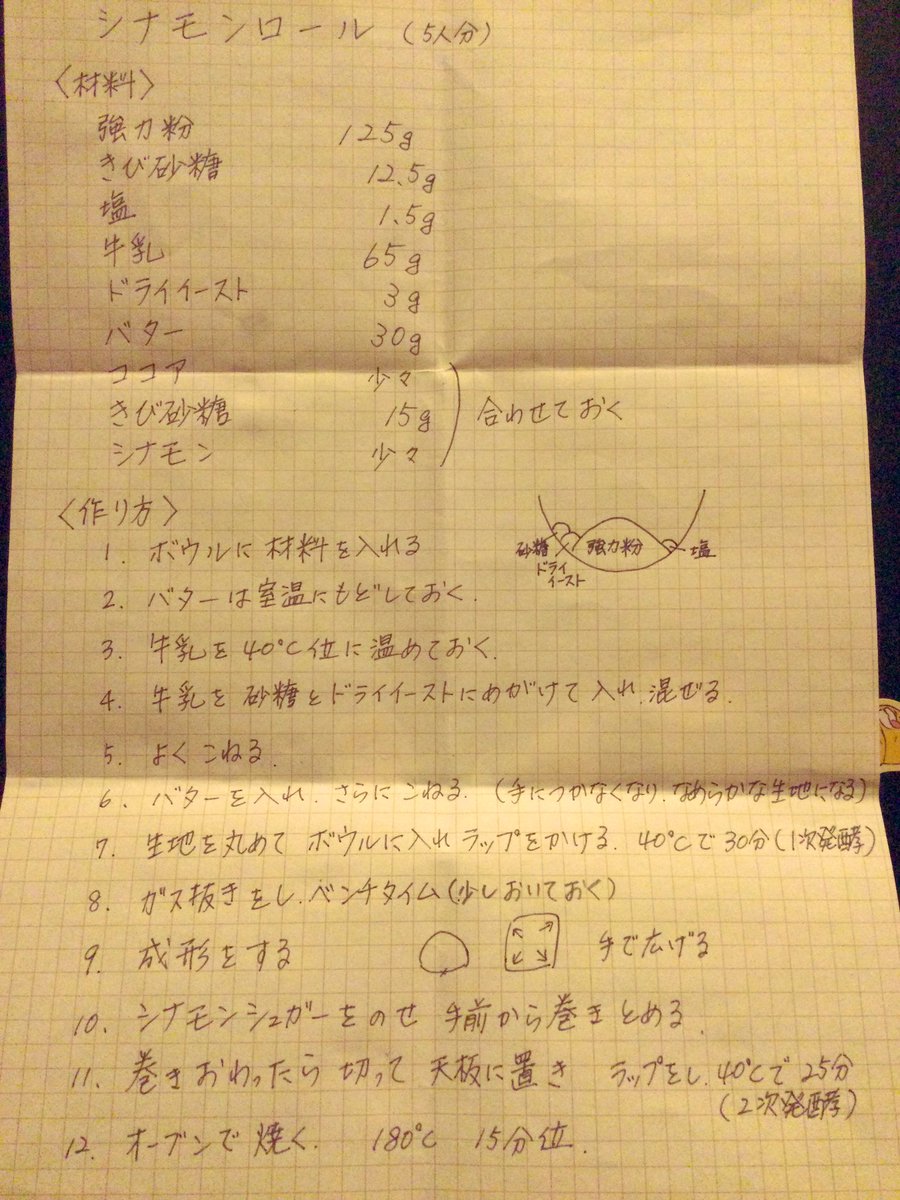 シナモンロール (5人分)
〈材料〉
強力粉 125g
きび砂糖 12.5g
塩 1.5g
牛乳 65g
ドライイースト 3g
バター 30g
ココア 少々
きび砂糖 15g 合わせておく
シナモン 少々
〈作り方〉
1. ボウルに材料を入れる
砂糖 強力粉 塩
ドライ
イースト
2. バターは室温にもどしておく.
3. 牛乳を40℃位に温めておく.
4. 牛乳を砂糖とドライイーストにめがけて入れ.混ぜる.
5. よくこねる.
6. バターを入れ.さらにこねる. (手につかなくなり.なめらかな生地になる)
7. 生地を丸めてボウルに入れラップをかける. 40℃で30分(1次発酵)
8. ガス抜きをし.ベンチタイム(少しおいておく)
9. 成形をする 手で広げる
10. シナモンシュガーをのせ 手前から巻きとめる.
11. 巻きおわったら切って天板に置き ラップをし.40℃で25分
(2次発酵)
12. オーブンで焼く. 180℃ 15分位.